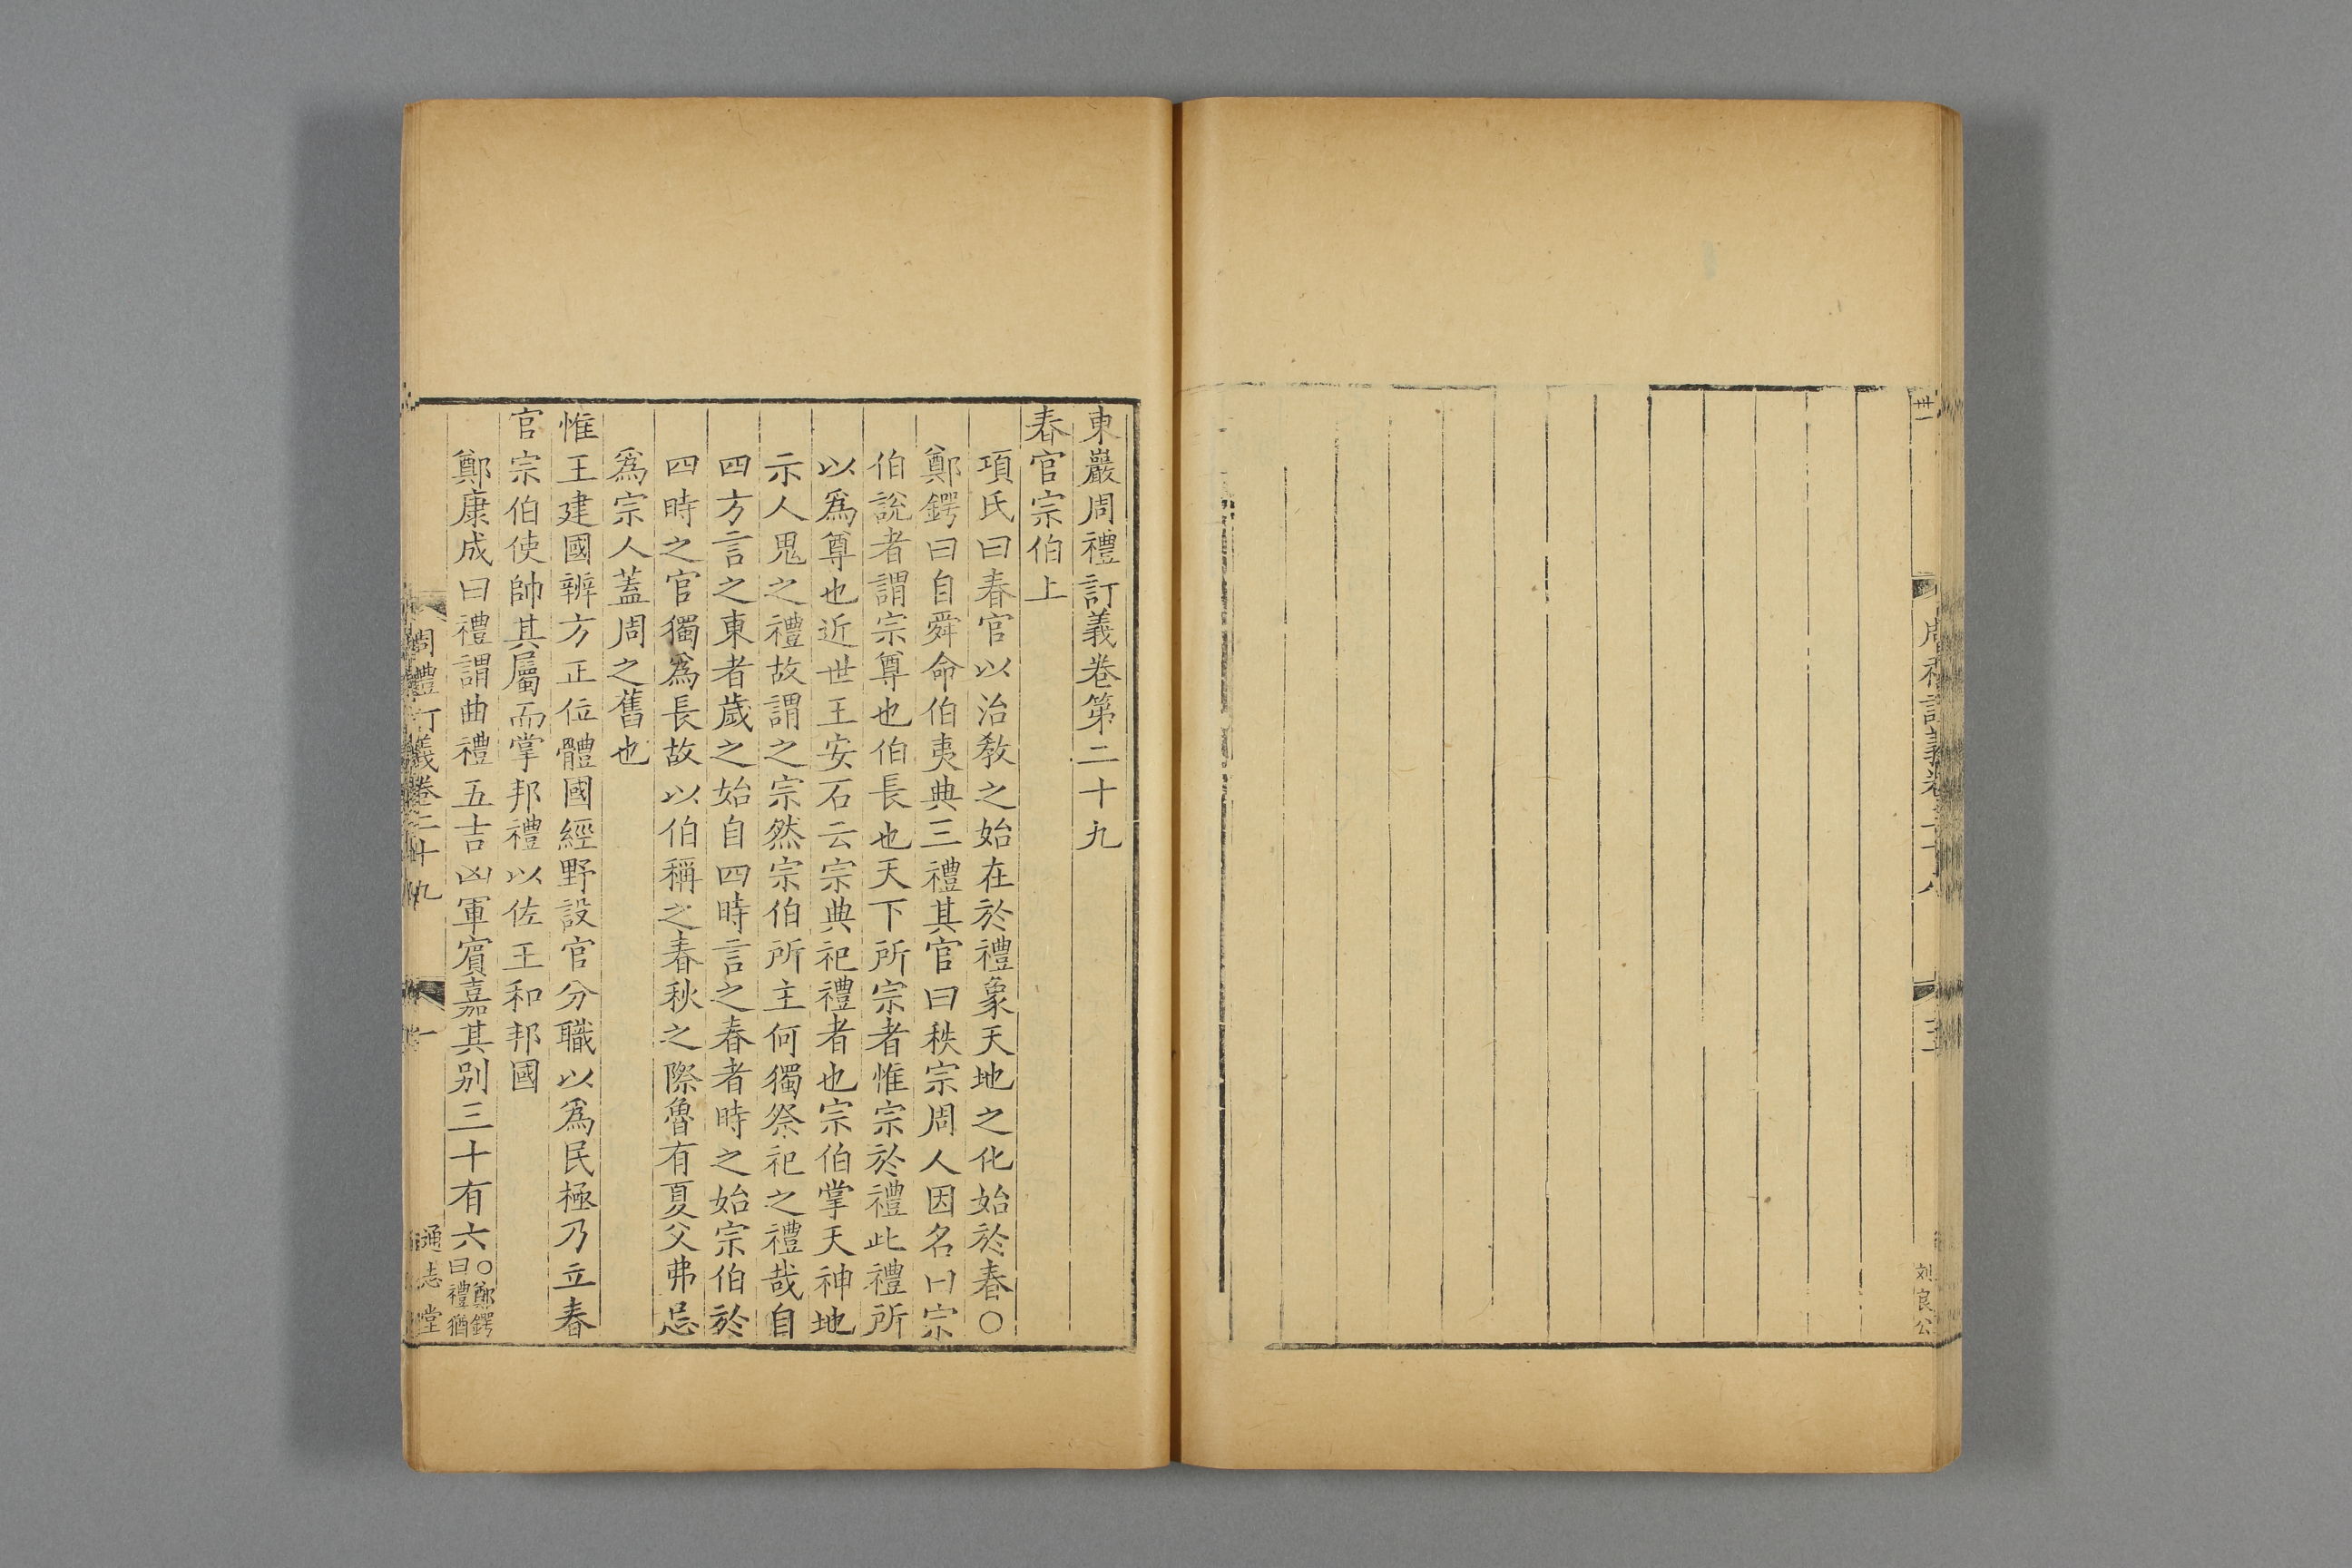 東巖周禮訂義卷第二十九
春官宗伯上
項氏曰春官以治教之始在於禮象天地之化始於春○
鄭鍔曰自舜命伯夷典三禮其官曰秩宗周人因名曰宗
伯說者謂宗尊也伯長也天下所宗者惟宗於禮此禮所
以爲尊也近世王安石云宗典祀禮者也宗伯掌天神地
示人鬼之禮故謂之宗然宗伯所主何獨祭祀之禮哉自
四方言之東者歲之始自四時言之春者時之始宗伯於
四時之官獨爲長故以伯稱之春秋之際魯有夏父弗忌
爲宗人蓋周之舊也
惟王建國辨方正位體國經野設官分職以爲民極乃立春
官宗伯使帥其屬而掌邦禮以佐王和邦國
鄭康成曰禮謂曲禮五吉凶軍賓嘉其别三十有六○鄭鍔
曰禮猶
周禮訂義卷二十九
一
通志堂